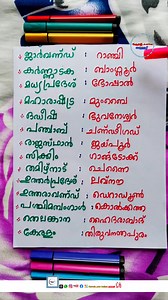 ജാർഖണ്ഡ് : റാഞ്ചി
കർണ്ണാടക : ബാംഗ്ലൂർ
മധ്യപ്രദേശ് : ഭോപ്പാൽ
മഹാരാഷ്ട്ര : മുംബൈ
ഒഡീഷ : ഭുവനേശ്വർ
പഞ്ചാബ് : ചണ്ഡീഗഢ്
രാജസ്ഥാൻ : ജയ്പൂർ
സിക്കിം : ഗാങ്ടോക്ക്
തമിഴ്നാട് : ചെന്നൈ
ഉത്തർപ്രദേശ് : ലഖ്നൗ
: ഡെറാഡൂൺ
പശ്ചിമബംഗാൾ : കൊൽക്കത്ത
തെലങ്കാന : ഹൈദരാബാദ്
കേരളം : തിരുവനന്തപുരം